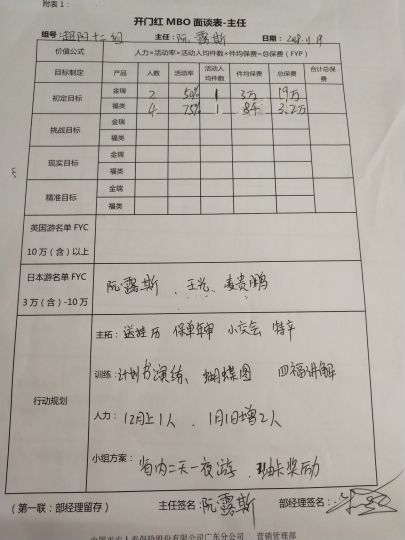 附表1：
开门红 MBO 面谈表-主任
组号：朝阳十二组 主任：阮露斯 日期：2018.11.19
价值公式 人力×活动率×活动人均件数×件均保费=总保费（FYP）
目标制定 产品 人数 活动率 活动人均件数 件均保费 总保费 合计总保费
初定目标 金瑞 2 50% 1 3万 19万
福类 4 75% 1 8千 3.2万
挑战目标 金瑞
福类
现实目标 金瑞
福类
精准目标 金瑞
福类
英国游名单 FYC
10 万（含）以上
日本游名单 FYC 阮露斯、王光、麦贵鹏
3 万（含）-10 万
行动规划
主拓：送挂历 保单年审 小交会 特辛
训练：计划书演练、蝴蝶图 四福讲解
人力：12月上1人、1月1日增2人
小组方案：省内二天一夜游、抽卡奖励
（第一联：部经理留存） 主任签名：阮露斯 部经理签名：
中国平安人寿保险股份有限公司广东分公司 营销管理部